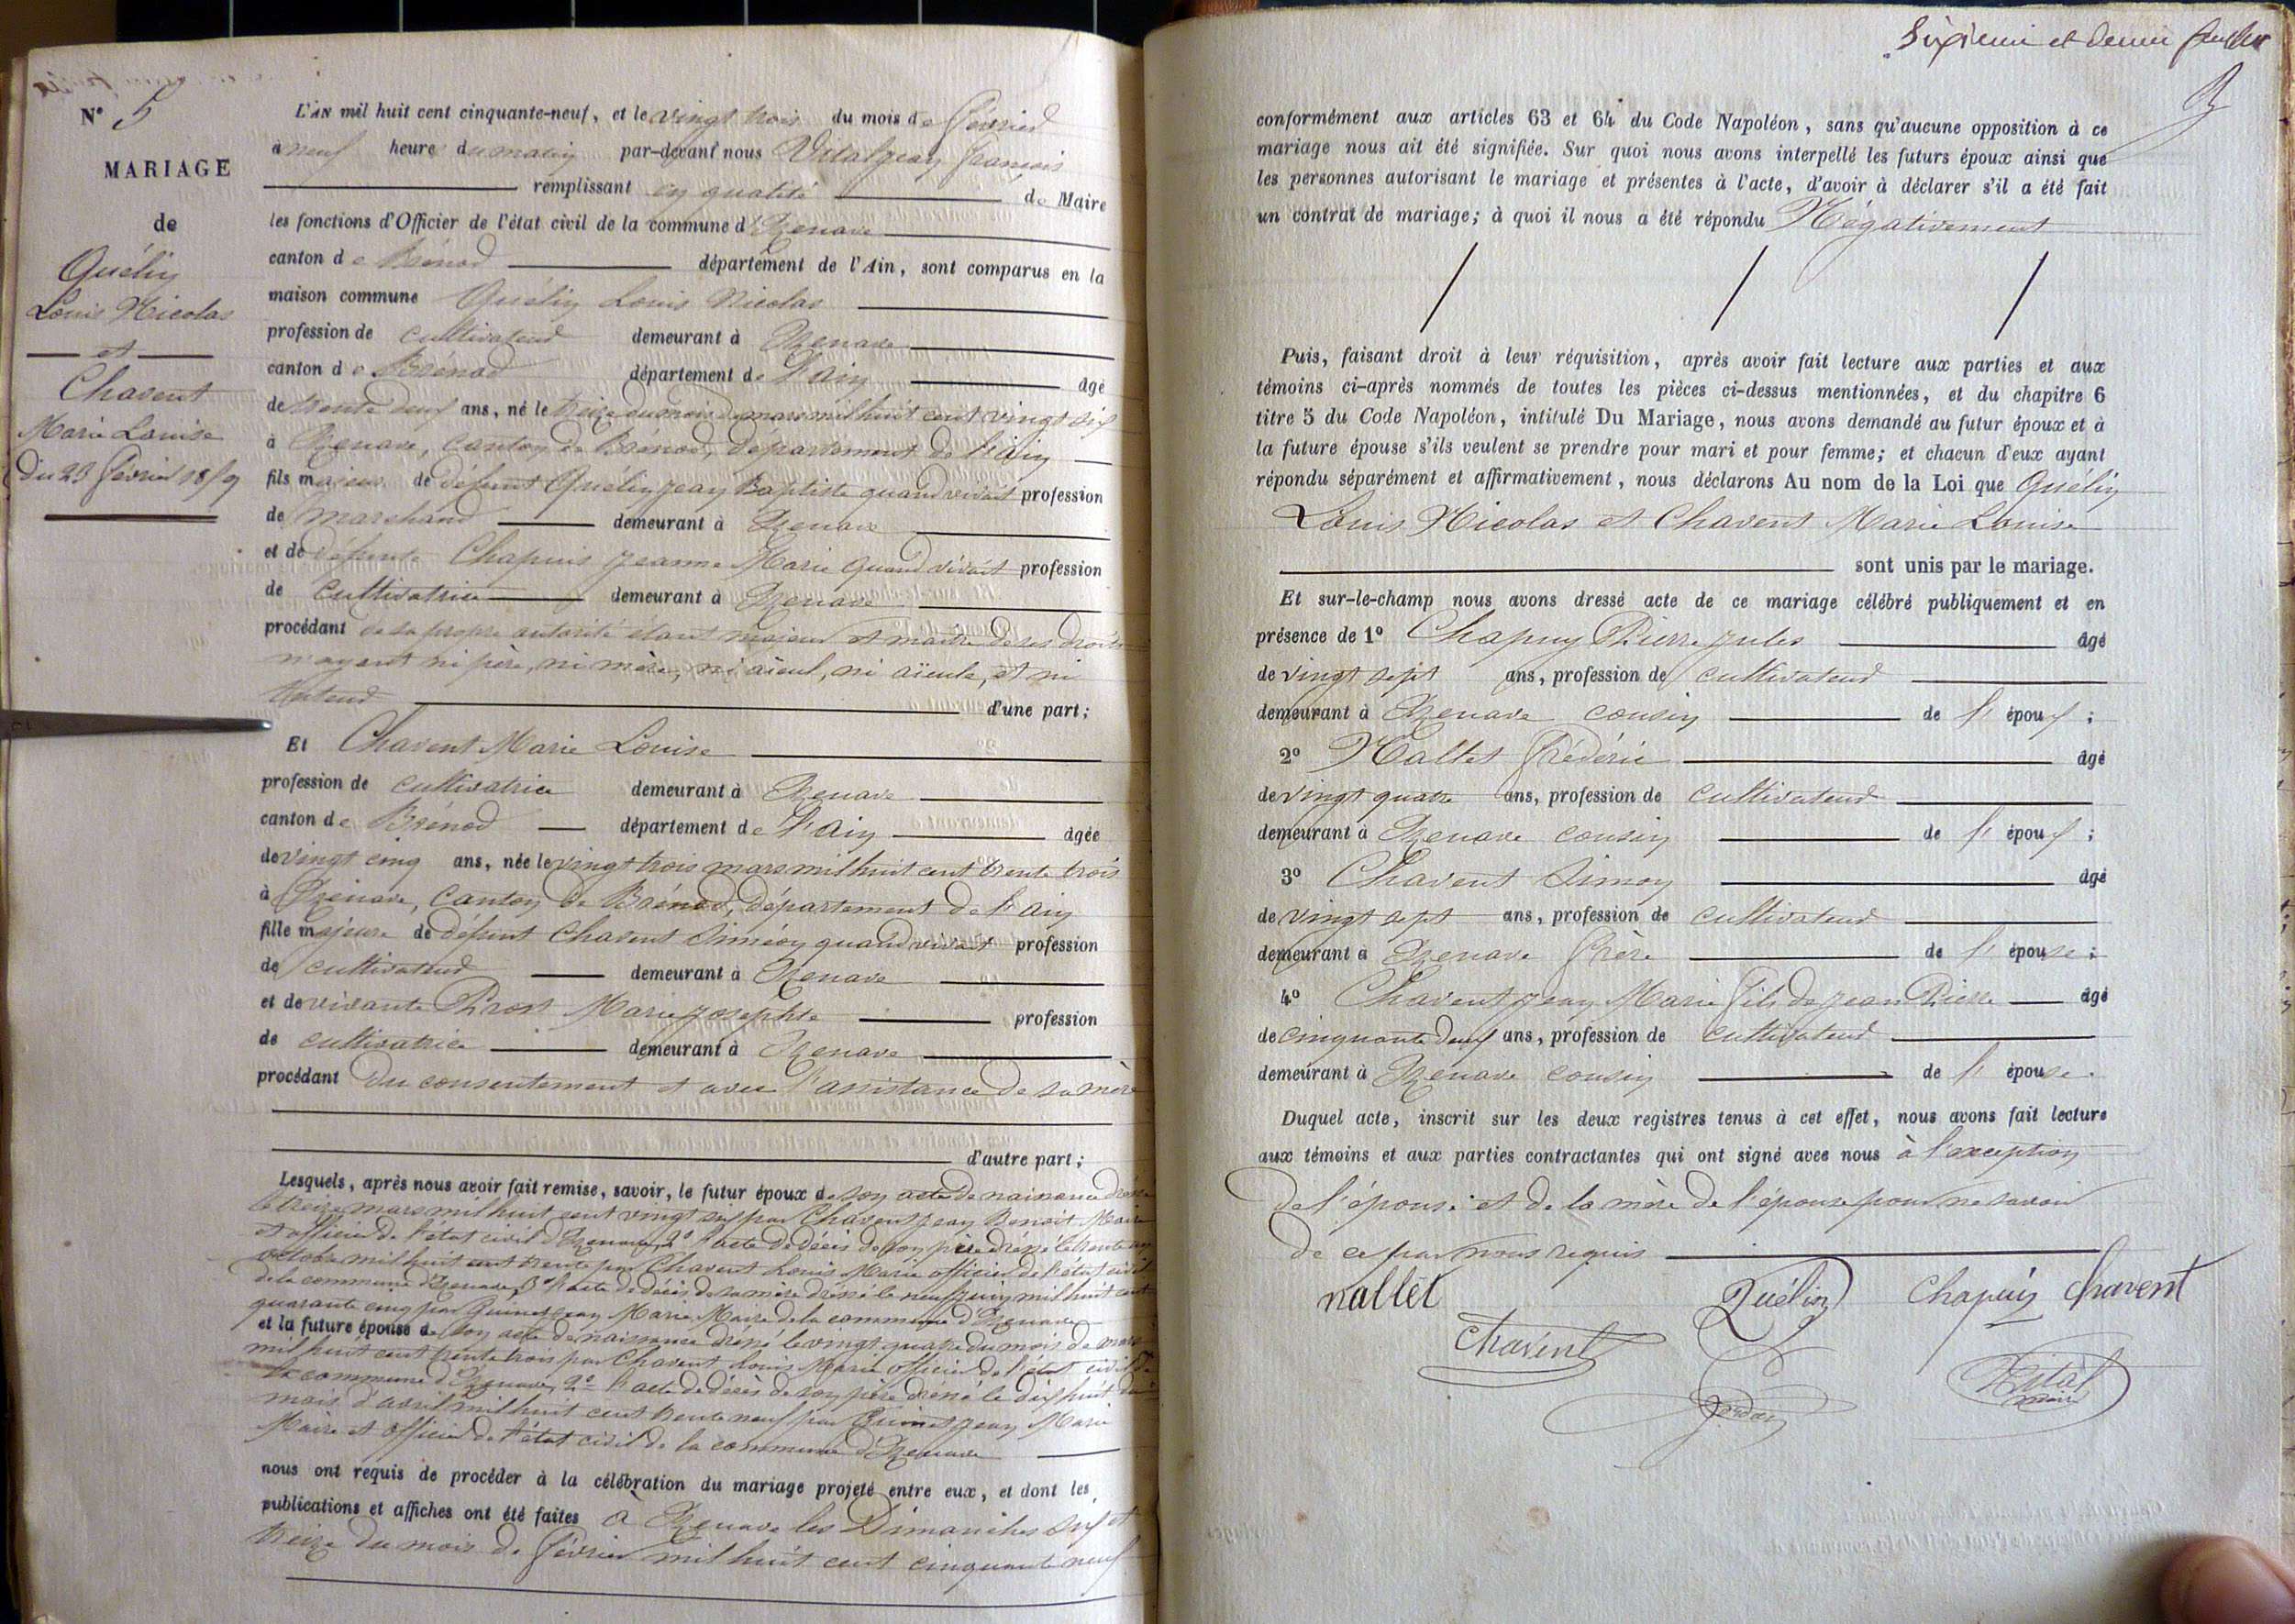 N° 5
MARIAGE
de
Quélin
Louis Nicolas
et
Chavent
Marie Louise
du 23 février 1859
L'AN mil huit cent cinquante-neuf, et le vingt trois du mois de février
à neuf heure du matin par-devant nous Vital jean françois
remplissant en qualité de Maire
les fonctions d'Officier de l'état civil de la commune d'Izenave
canton de Brénod département de l'Ain, sont comparus en la
maison commune Quélin Louis Nicolas
profession de cultivateur demeurant à Izenave
canton de Brénod département de l'ain âgé
de trente deux ans, né le treize du mois de mars mil huit cent vingt six
à Izenave, Canton de Brénod, département de l'ain
fils majeur de défunt Quélin jean Baptiste quand vivait profession
de marchand demeurant à Izenave
et de défunte Chapuis jeanne Marie quand vivait profession
de cultivatrice demeurant à Izenave
procédant de sa propre autorité étant majeur et maître de ses droits
n'ayant ni père, ni mère, ni aïeul, ni aïeule, et ni
tuteur d'une part;
Et Chavent Marie Louise
profession de cultivatrice demeurant à Izenave
canton de Brénod département de l'Ain âgée
de vingt cinq ans, née le vingt trois mars mil huit cent trente trois
à Izenave, Canton de Brénod, département de l'ain
fille majeure de défunt Chavent Siméon quand vivait profession
de cultivateur demeurant à Izenave
et de vivante Prost Marie josephte profession
de cultivatrice demeurant à Izenave
procédant du consentement et avec l'assistance de sa mère
d'autre part;
Lesquels, après nous avoir fait remise, savoir, le futur époux de son acte de naissance dressé
le treize mars mil huit cent vingt six par Chavent jean Benoit Maire
et officier de l'état civil d'Izenave, 2° l'acte de décès de son père dréssé le trente un
octobre mil huit cent trente par Chavent Louis Marie officier de l'état civil
de la commune d'Izenave, 3° l'acte de décès de sa mère dressé le neuf juin mil huit cent
quarante cinq par Quinet jean Marie Maire de la commune d'Izenave
et la future épouse de son acte de naissance dressé le vingt quatre du mois de mars
mil huit cent trente trois par Chavent Louis Marie officier de l'état civil de
la commune d'Izenave, 2° l'acte de décès de son père dressé le dix huit du
mois d'avril mil huit cent trente neuf par Quinet jean Marie
Maire et officier de l'état civil de la commune d'Izenave
nous ont requis de procéder à la célébration du mariage projeté entre eux, et dont les
publications et affiches ont été faites à Izenave les Dimanches six et
treize du mois de février mil huit cent cinquante neuf
Sixième et dernier feuillet
conformément aux articles 63 et 64 du Code Napoléon, sans qu'aucune opposition à ce
mariage nous ait été signifiée. Sur quoi nous avons interpellé les futurs époux ainsi que
les personnes autorisant le mariage et présentes à l'acte, d'avoir à déclarer s'il a été fait
un contrat de mariage; à quoi il nous a été répondu Négativement
Puis, faisant droit à leur réquisition, après avoir fait lecture aux parties et aux
témoins ci-après nommés de toutes les pièces ci-dessus mentionnées, et du chapitre 6
titre 5 du Code Napoléon, intitulé Du Mariage, nous avons demandé au futur époux et à
la future épouse s'ils veulent se prendre pour mari et pour femme; et chacun d'eux ayant
répondu séparément et affirmativement, nous déclarons Au nom de la Loi que Quélin
Louis Nicolas et Chavent Marie Louise
sont unis par le mariage.
Et sur-le-champ nous avons dressé acte de ce mariage célébré publiquement et en
présence de 1° Chapuy Pierre jules âgé
de vingt sept ans, profession de cultivateur
demeurant à Izenave cousin de l'époux;
2° Nallet frédéric âgé
de vingt quatre ans, profession de cultivateur
demeurant à Izenave cousin de l'époux;
3° Chavent Simon âgé
de vingt sept ans, profession de cultivateur
demeurant à Izenave frère de l'épouse;
4° Chavent jean Marie fils de jean Pierre âgé
de cinquante deux ans, profession de cultivateur
demeurant à Izenave cousin de l'épouse.
Duquel acte, inscrit sur les deux registres tenus à cet effet, nous avons fait lecture
aux témoins et aux parties contractantes qui ont signé avec nous à l'exception
de l'épouse et de la mère de l'épouse pour ne savoir
de ce par nous requis
nallet Quélin Chapuis chavent
Chavent
Vital
maire